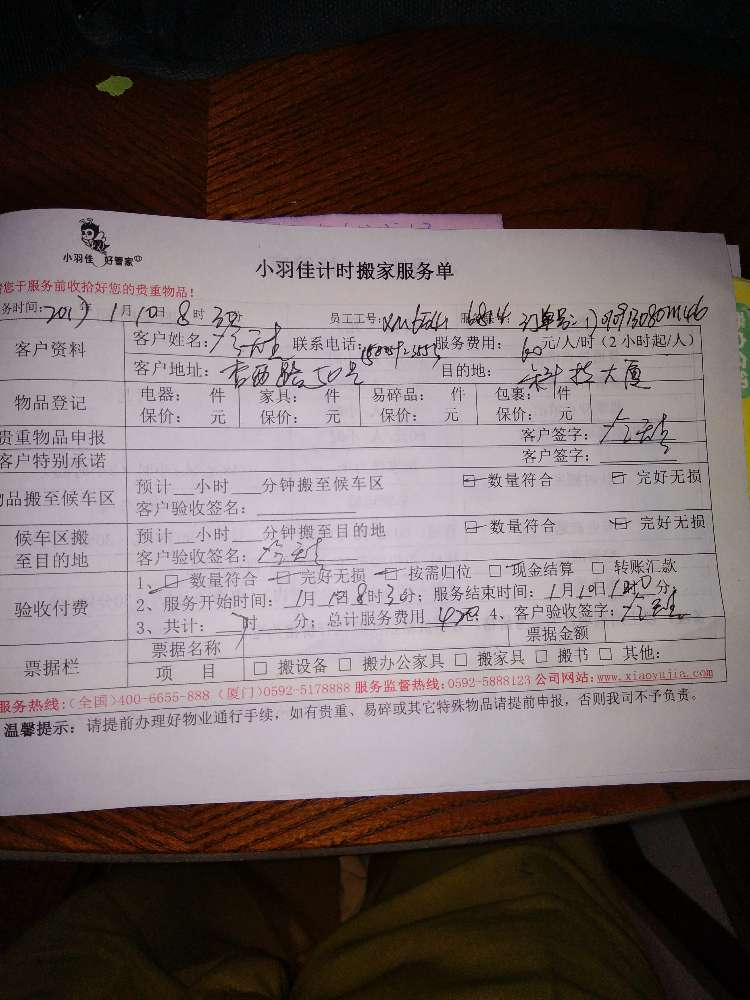 小羽佳 好管家
小羽佳计时搬家服务单
您于服务前收拾好您的贵重物品！
务时间：2017年1月10日8时30分 员工工号： 订单号：
客户资料 客户姓名： 联系电话： 服务费用：60元/人/时（2小时起/人）
客户地址：杏西路50号 目的地：科技大厦
物品登记 电器： 件 家具： 件 易碎品： 件 包裹： 件
保价： 元 保价： 元 保价： 元 保价： 元
贵重物品申报 客户签字：
客户特别承诺 客户签字：
物品搬至候车区 预计__小时___分钟搬至候车区 数量符合 完好无损
客户验收签名：
候车区搬至目的地 预计__小时___分钟搬至目的地 数量符合 完好无损
客户验收签名：
验收付费 1、 数量符合 完好无损 按需归位 □ 现金结算 □ 转账汇款
2、服务开始时间：1月10日8时30分；服务结束时间：1月10日 时 分；
3、共计： 时 分；总计服务费用 420元；4、客户验收签字：
票据栏 票据名称 票据金额
项 目 □ 搬设备 □ 搬办公家具 □ 搬家具 □ 搬书 □ 其他:
服务热线:(全国)400-6655-888 (厦门)0592-5178888 服务监督热线:0592-5888123 公司网站:www.xiaoyujia.com
温馨提示：请提前办理好物业通行手续，如有贵重、易碎或其它特殊物品请提前申报，否则我司不予负责。